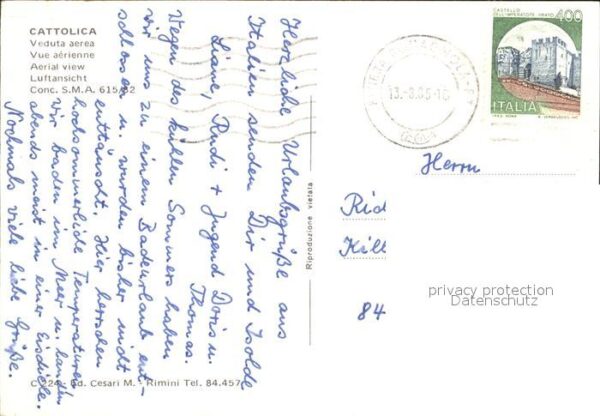 CATTOLICA
Veduta aerea
Vue aérienne
Aerial view
Luftansicht
Conc. S.M.A. 615/82
Herzliche Urlaubsgrüße aus
Italien senden Dir und Isolde
Liane, Rudi + Jugend Doris u.
Thomas.
Wegen des kühlen Sommers haben
wir uns zu einem Badeurlaub ent-
schlossen u. wurden bisher nicht
enttäuscht. Hier herrschen
hochsommerliche Temperaturen.
Wir baden im Meer u. landen
abends meist in einer Eisdiele.
Nochmals viele liebe Grüße.
C 224 - Ed. Cesari M. - Rimini Tel. 84.457
Riproduzione vietata
13.-8.85-16
CASTELLO
DELL'IMPERATORE PRATO
400
ITALIA
Herrn
Rid
Kill
84
privacy protection
Datenschutz